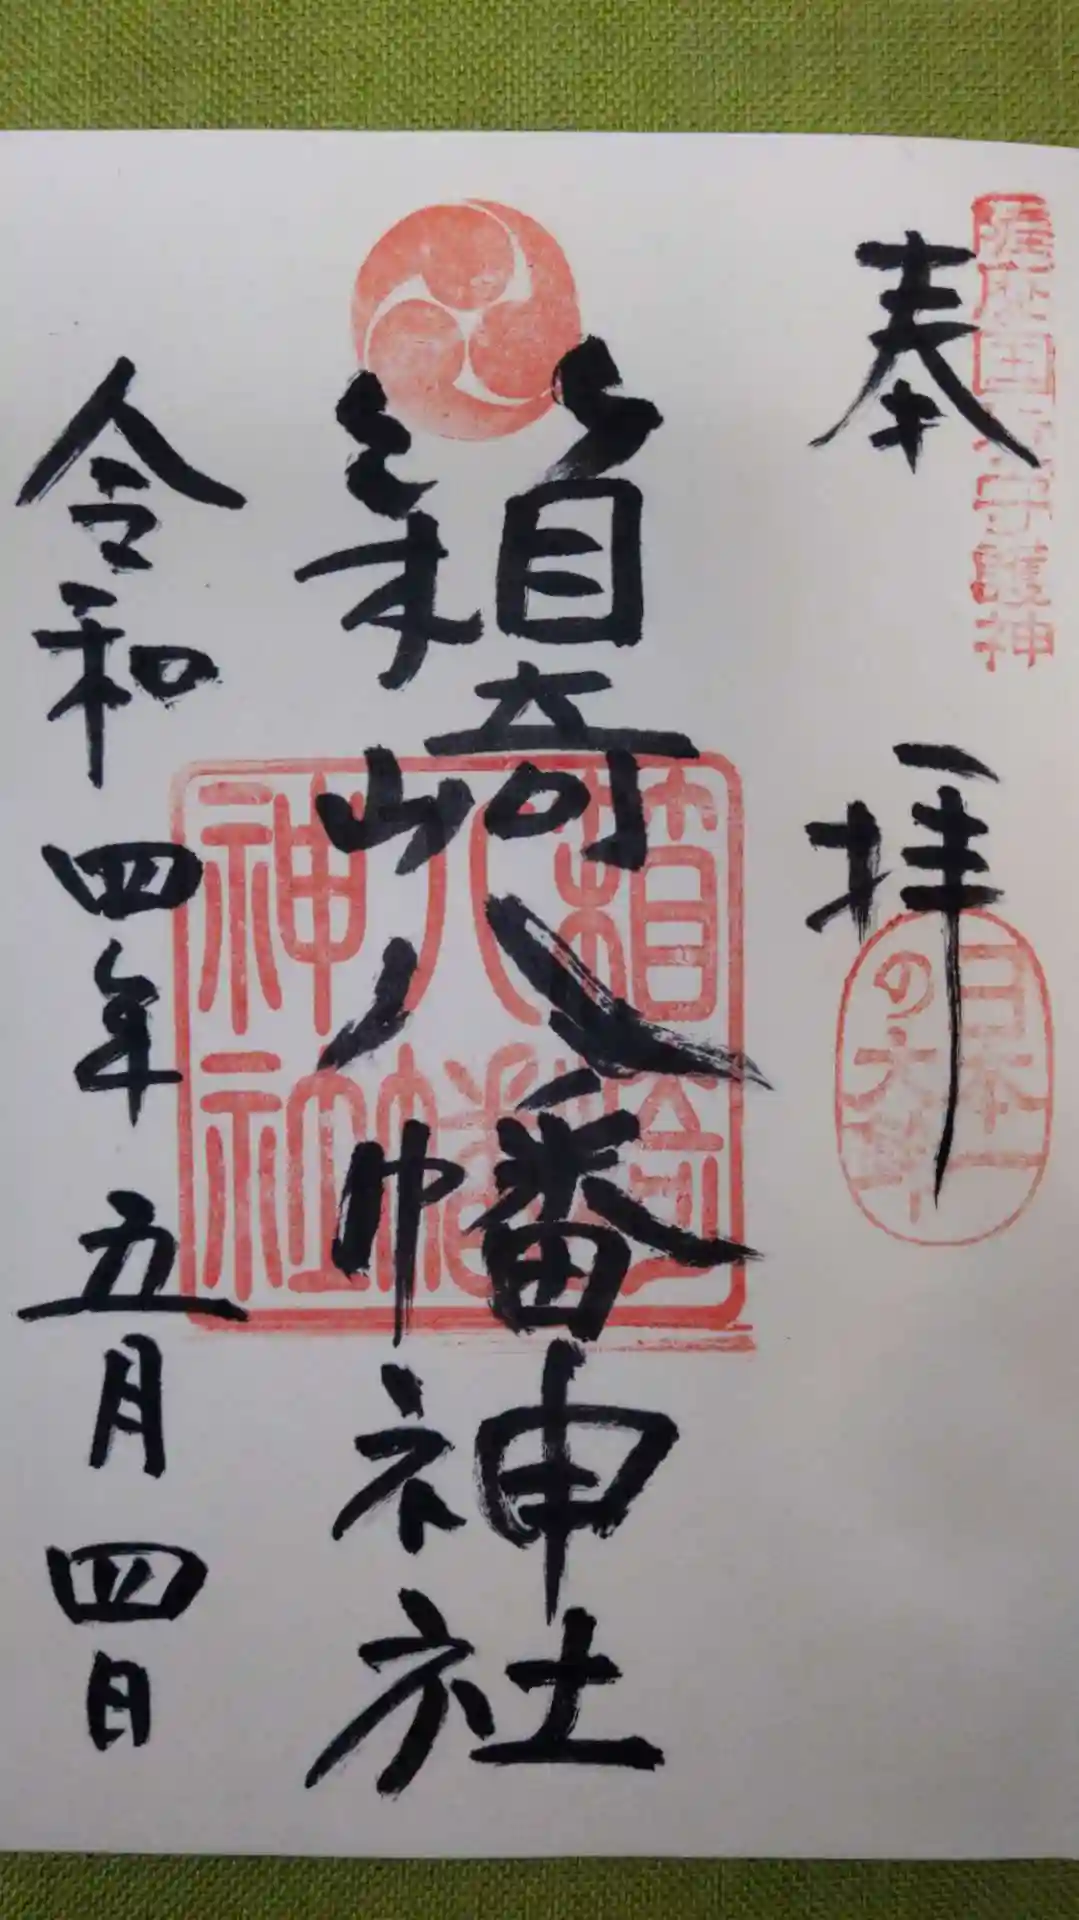 国
守護神
奉拝
日本一
の大鈴
箱崎八幡神社
箱崎
八幡
神社
令和四年五月四日